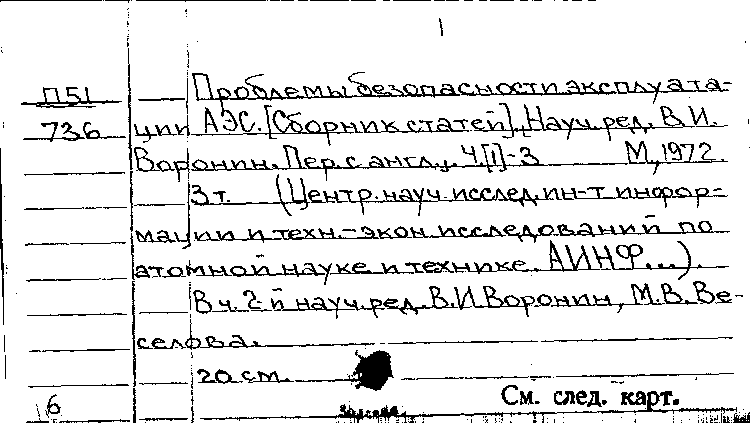 1
П51 Проблемы безопасности эксплуата-
736 ции АЭС. [Сборник статей]. Науч. ред. В.И.
Воронин. Пер. с англ. Ч.[1]-3 М., 1972.
3 т. (Центр. науч. исслед. ин-т инфор-
мации и техн.-экон. исследований по
атомной науке и технике. АИНФ...).
В ч. 2-й науч. ред. В.И. Воронин, М.В. Ве-
селова.
20 см.
См. след. карт.
16